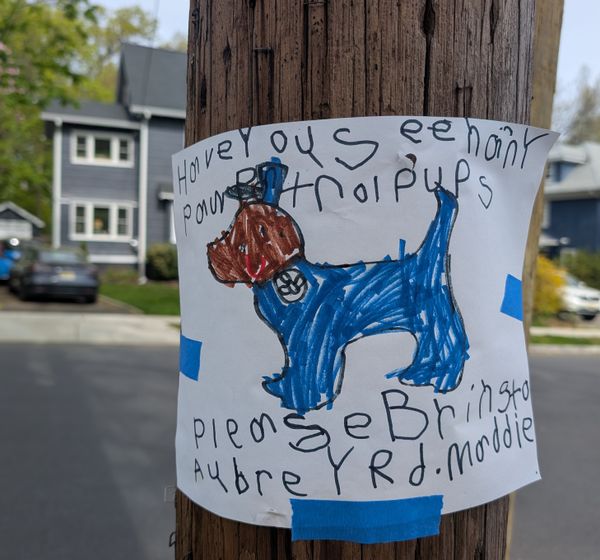 HaveYouSeehanY
pawPatrolpups
pleaseBringto
AubreYRd.Maddie